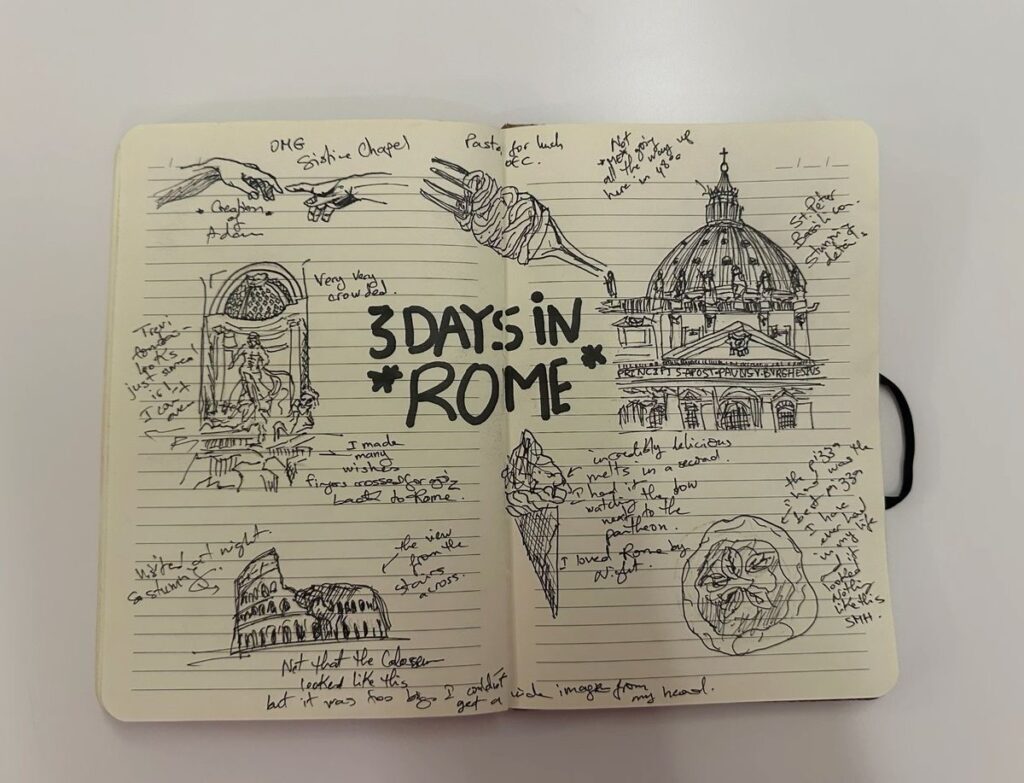 OMG
Sistine Chapel
*Creation*
of
Adam
Pasta for lunch
etc.
Not
*NOT* going
all the way up
here in 48°
St. Peter
Basilica.
Stunning
details
Very very
crowded.
Trevi
Fountain
it's
just unreal
is it
I can't
even
3 DAYS iN
*ROME*
I made
many
wishes
fingers crossed for
back to Rome.
PRINCIPIS APOST PAVLVS V BVRGHESIVS
incredibly delicious
melts in a second.
I had it
watching the
next to the
pantheon.
I loved Rome by
Night.
the pizza
I had was the
best pizza
I have
ever had
in my life
but it
looked
nothing
like this
SMH
Visited at night.
So stunning
the view
from the
stairs
across.
Not that the Colosseum
looked like this
but it was too big. I couldn't
get a wide image from
my head.